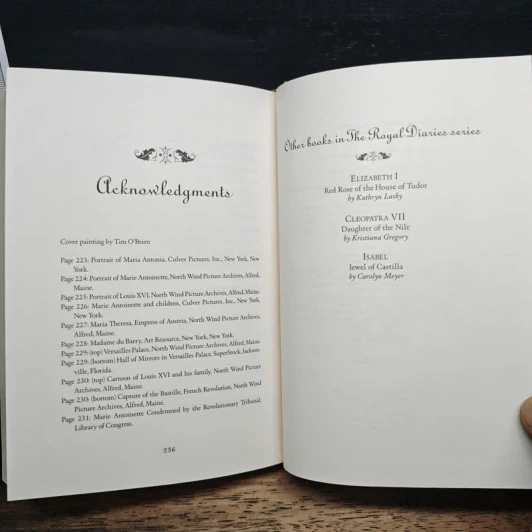 Acknowledgments
Cover painting by Tim O'Brien
Page 223: Portrait of Maria Antonia, Culver Pictures, Inc., New York, New
York.
Page 224: Portrait of Marie Antoinette, North Wind Picture Archives, Alfred,
Maine.
Page 225: Portrait of Louis XVI, North Wind Picture Archives, Alfred, Maine.
Page 226: Marie Antoinette and children, Culver Pictures, Inc., New York,
New York.
Page 227: Maria Theresa, Empress of Austria, North Wind Picture Archives,
Alfred, Maine.
Page 228: Madame du Barry, Art Resource, New York, New York.
Page 229: (top) Versailles Palace, North Wind Picture Archives, Alfred, Maine.
Page 229: (bottom) Hall of Mirrors in Versailles Palace, SuperStock, Jackson-
ville, Florida.
Page 230: (top) Cartoon of Louis XVI and his family, North Wind Picture
Archives, Alfred, Maine.
Page 230: (bottom) Capture of the Bastille, French Revolution, North Wind
Picture Archives, Alfred, Maine.
Page 231: Marie Antoinette Condemned by the Revolutionary Tribunal:
Library of Congress.
236
Other books in The Royal Diaries series
ELIZABETH I
Red Rose of the House of Tudor
by Kathryn Lasky
CLEOPATRA VII
Daughter of the Nile
by Kristiana Gregory
ISABEL
Jewel of Castilla
by Carolyn Meyer